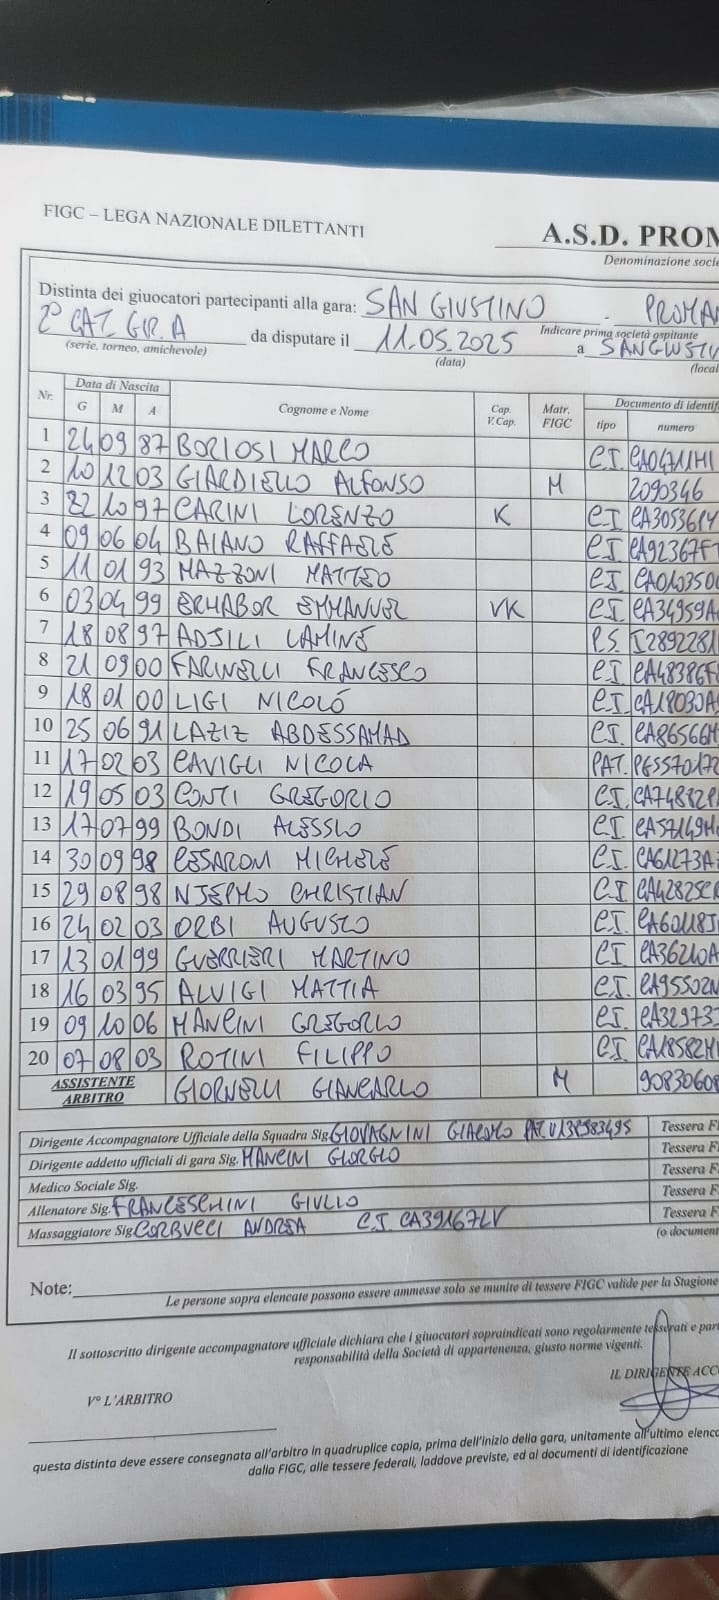 FIGC – LEGA NAZIONALE DILETTANTI
A.S.D. PROM
Denominazione socie
Distinta dei giuocatori partecipanti alla gara: SAN GIUSTINO - PROMA
Indicare prima società ospitante
2° CAT. GIR. A da disputare il 11.05.2025 a SANGIUSTI
(serie, torneo, amichevole) (data) (local
Nr. Data di Nascita Cognome e Nome Cap. V.Cap. Matr. FIGC Documento di identif
G M A tipo numero
1 24 09 87 BORIOSI MARCO C.I. CA04711HI
2 10 12 03 GIARDIELLO ALFONSO M 2090346
3 22 10 97 CARINI LORENZO K C.I CA30536IY
4 09 06 04 BAIANO RAFFAELE C.I CA92367F
5 11 01 93 MAZZONI MATTEO C.I CA01035O
6 03 04 99 ERHABOR EMMANUEL VK C.I CA34959A
7 18 08 97 ADJILI LAMINE P.S. I2892281
8 21 09 00 FARINELLI FRANCESCO C.I CA48386F
9 18 01 00 LIGI NICOLÓ C.I. CA18030A
10 25 06 91 LAZIZ ABDESSAMAD C.I. CA86566H
11 17 02 03 CAVIGLI NICOLA PAT. PG5570172
12 19 05 03 CONTI GREGORIO C.I. CA74882P
13 17 07 99 BONDI ALESSIO C.I. CA57149H
14 30 09 98 CESARONI MICHELE C.I. CA61273A
15 29 08 98 NJEPMO CHRISTIAN C.I CA42825C
16 24 02 03 ORBI AUGUSTO C.I. CA60118J
17 13 01 99 GUERRIERI MARTINO C.I CA36240A
18 16 03 95 ALUIGI MATTIA C.I. CA95502N
19 09 10 06 MANCINI GREGORIO C.I. CA32973
20 07 08 03 ROTINI FILIPPO C.I. CA18582H
ASSISTENTE ARBITRO GIORNELLI GIANCARLO M 9083060
Dirigente Accompagnatore Ufficiale della Squadra Sig. GIOVAGNINI GIACOMO PAT. U138583495 Tessera F
Dirigente addetto ufficiali di gara Sig. MANCINI GIORGIO Tessera F
Medico Sociale Sig. Tessera F
Allenatore Sig. FRANCESCHINI GIULIO Tessera F
Massaggiatore Sig CORBUCCI ANDREA C.I. CA39167LV Tessera F
(o document
Note:
Le persone sopra elencate possono essere ammesse solo se munite di tessere FIGC valide per la Stagione
Il sottoscritto dirigente accompagnatore ufficiale dichiara che i giuocatori sopraindicati sono regolarmente tesserati e part
responsabilità della Società di appartenenza, giusto norme vigenti.
IL DIRIGENTE ACC
V° L'ARBITRO
questa distinta deve essere consegnata all'arbitro in quadruplice copia, prima dell'inizio della gara, unitamente all'ultimo elenco
dalla FIGC, alle tessere federali, laddove previste, ed ai documenti di identificazione